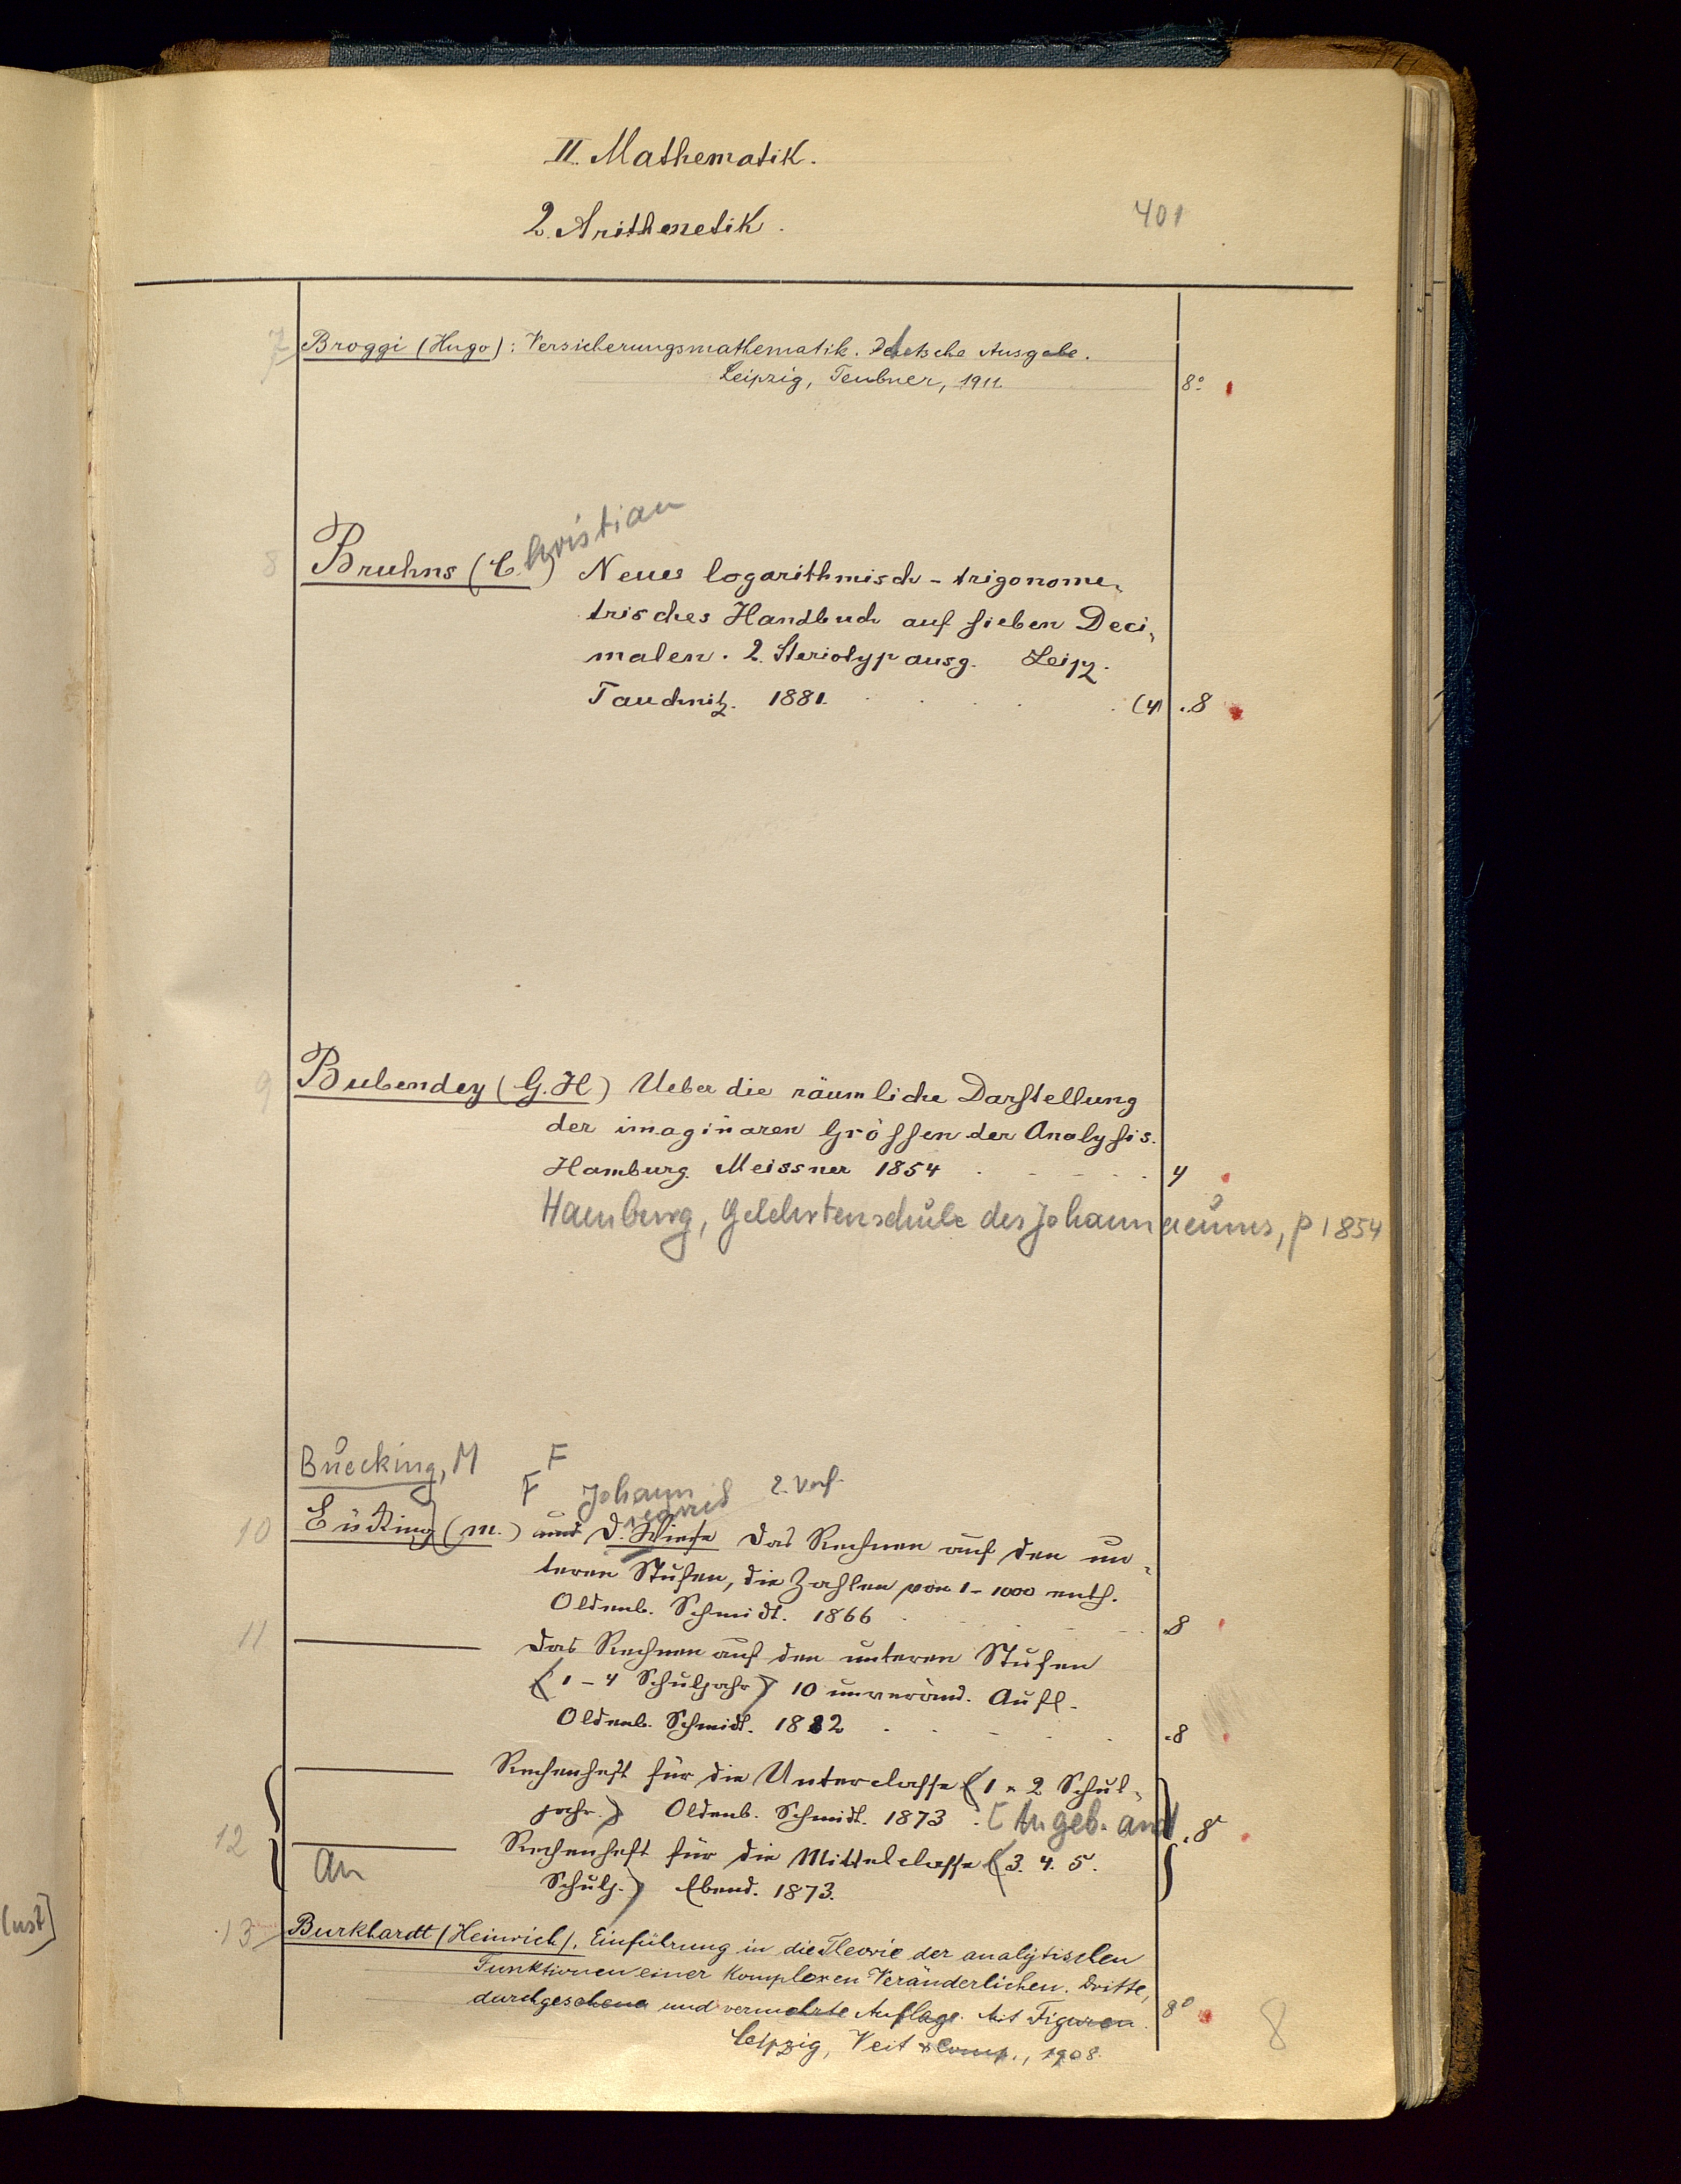 II. Mathematik.
2. Arithmetik.
401
7 Broggi (Hugo): Versicherungsmathematik. Deutsche Ausgabe.
Leipzig, Teubner, 1911. 8°
Christian
8 Bruhns (C.) Neues logarithmisch-trigonome-
trisches Handbuch auf sieben Deci-
malen. 2. Steriotypausg. Leipz.
Tauchnitz. 1881. (4) .8
9 Bubendey (G. H) Ueber die räumliche Darstellung
der imaginären Grössen der Analysis.
Hamburg. Meissner 1854 4
Hamburg, Gelehrtenschule des Johannaeums, P 1854
Buecking, M F
F Johann 2. Verf.
10 Büking (M.) und D. Wiese Das Rechnen auf den un-
teren Stufen, die Zahlen von 1-1000 enth.
Oldenb. Schmidt. 1866 .8
11 Das Rechnen auf den unteren Stufen
(1-4 Schuljahr) 10 unveränd. Aufl.
Oldenb. Schmidt. 1882 .8
Rechenheft für die Unterclasse (1 x 2 Schul-
jahr.) Oldenb. Schmidt. 1873. [An geb. and .8
12 Rechenheft für die Mittelclasse (3. 4. 5.
an Schulj.) Ebend. 1873.
13 Burkhardt (Heinrich). Einführung in die Theorie der analytischen
Funktionen einer komplexen Veränderlichen. Dritte,
durchgesehene und vermehrte Auflage. Mit Figuren. 8°
Leipzig, Veit & Comp., 1908.
8